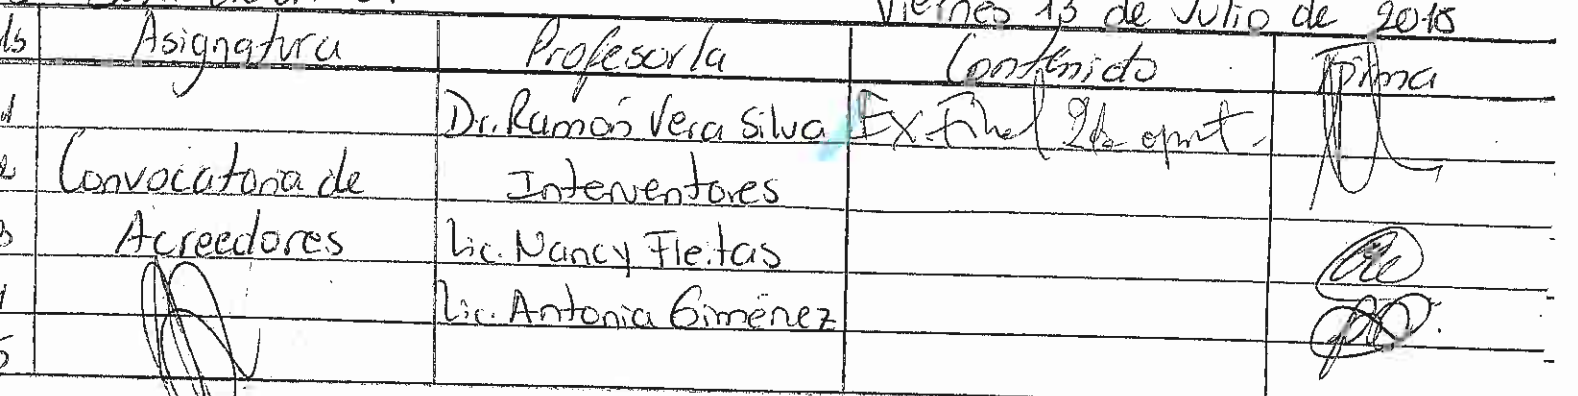 Viernes 13 de Julio de 2018
Asignatura Profesor/a Contenido Firma
1 Dr. Ramón Vera Silva Ex. Final 2da oport.
2 Convocatoria de Interventores
3 Acreedores Lic. Nancy Fleitas
4 Lic. Antonia Giménez
5